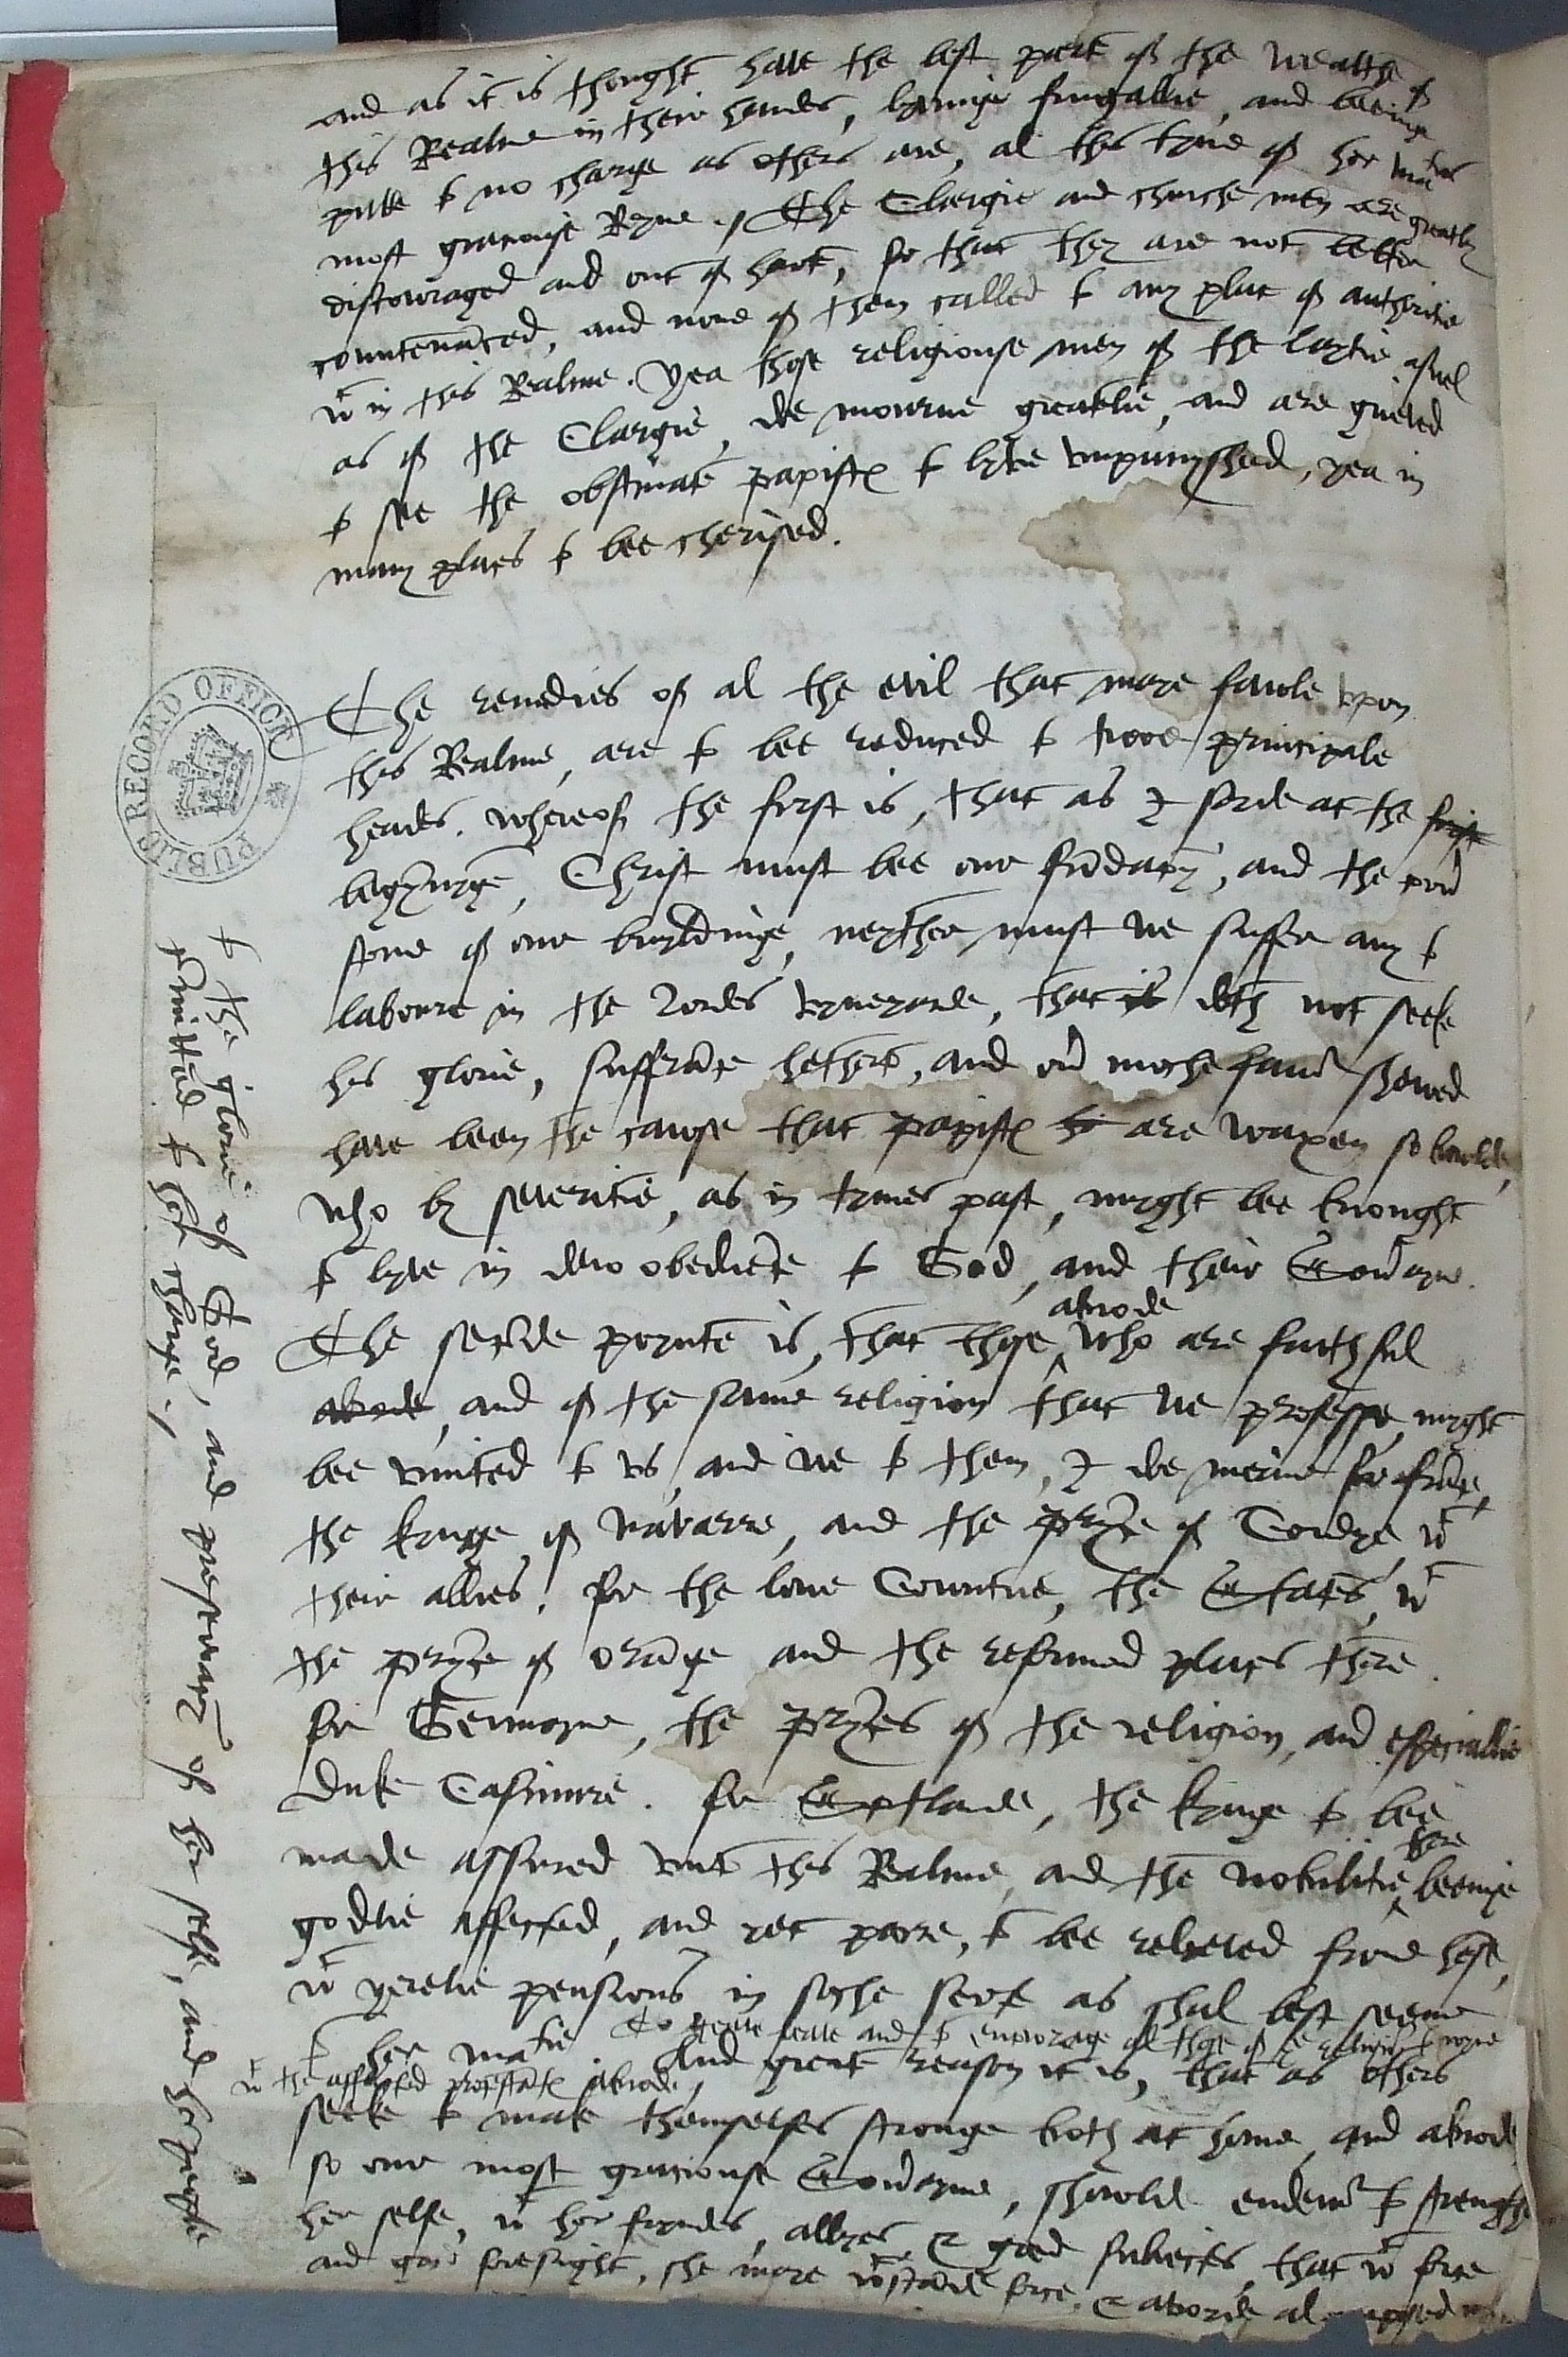 and as it is thought have the best parte of the wealthe of
this Realme in their handes, lyvinge frugallie, and beeinge
putte to no charge as others are, al this tyme of her maties
most graciouse Rayne ./ The Clargie and churche men are greatly
discouraged and out of hart, for that they are not better
countenaced, and none of them called to any place of authoritie
wt in this Realme. Yea those religiouse men of the laytie aswel
as of the Clargie, doe mourne greatelie, and are greved
to see the obstinate papistes to lyve unpunyshed, yea in
many places to bee cherised.
The remedies of al the evil that maye fawle upon
this Realme, are to bee reduced to twoe principale
heades. Whereof the first is, that as I saide at the first
begynnyge, Christ must bee our fundacyo, and the corn
stone of our buyldinge, neyther must we suffer any to
laboure in the Lordes vyneyarde, that is doth not seeke
his glorie, suffrace hetherto, and ovr moche favor shewed
have been the cawse that papistes are waxen so bowlde,
who by severitie, as in tymes past, myght bee brought
to lyve in dew obediece to God, and their Soverayne.
The secode poynte is, that those abrode who are faithful
abrode, and of the same religion that we professe, myght
bee united to us, and we to them, I doe meane for frace,
the kynge of Navarre, and the prynce of Condye, wt
their allies. for the lowe Countrie, the States, wt
the prynce of orange and the reformed places there.
for Germayne, the prynces of the religion, and especiallie
Duke Casimire. for Scotlande, the kynge to bee
made assured unto this Realme, and the nobilitie there beeinge
godlie affected, and yet poore, to bee releved frome hence,
wt yerelie pensions in soche sorte as shal best seeme
to her matie. To and to encourage al those of religion
wt the afflicted protestates abrode, And greate reason it is, that as others
seeke to make themselfes stronge both at home, and abrode
so our most graciouse Soverayne, showld endevor to strength
her selfe, wt her fryndes, allyes, & good subiectes, that wt force
and good foresight, she maye wtstande force, & avoyde al
to the glorie of God, and preservacyo of her selfe, and her people
comitted to her charge ./
PUBLIC RECORD OFFICE